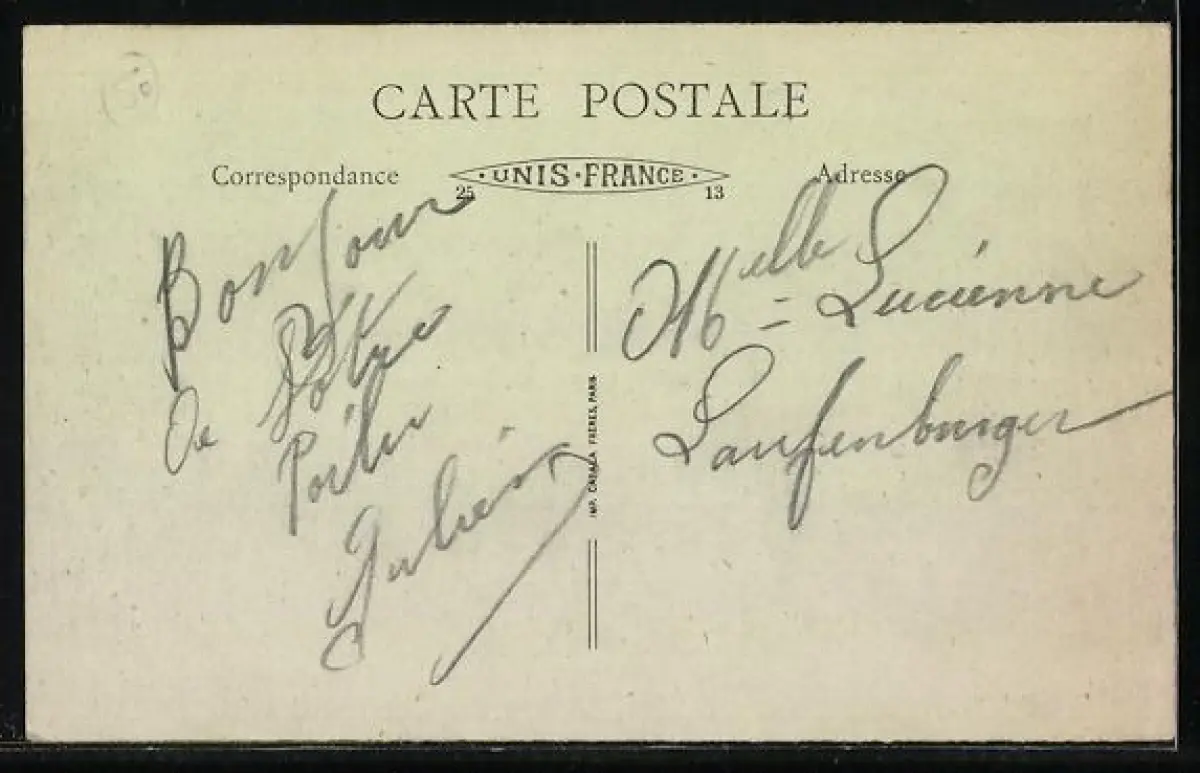 CARTE POSTALE
Correspondance
·UNIS·FRANCE·
25 13
Adresse
Bonjour
de Votre
Poilu
Julien
IMP. CATALA FRÈRES, PARIS
Melle Lucienne
Laufenburger